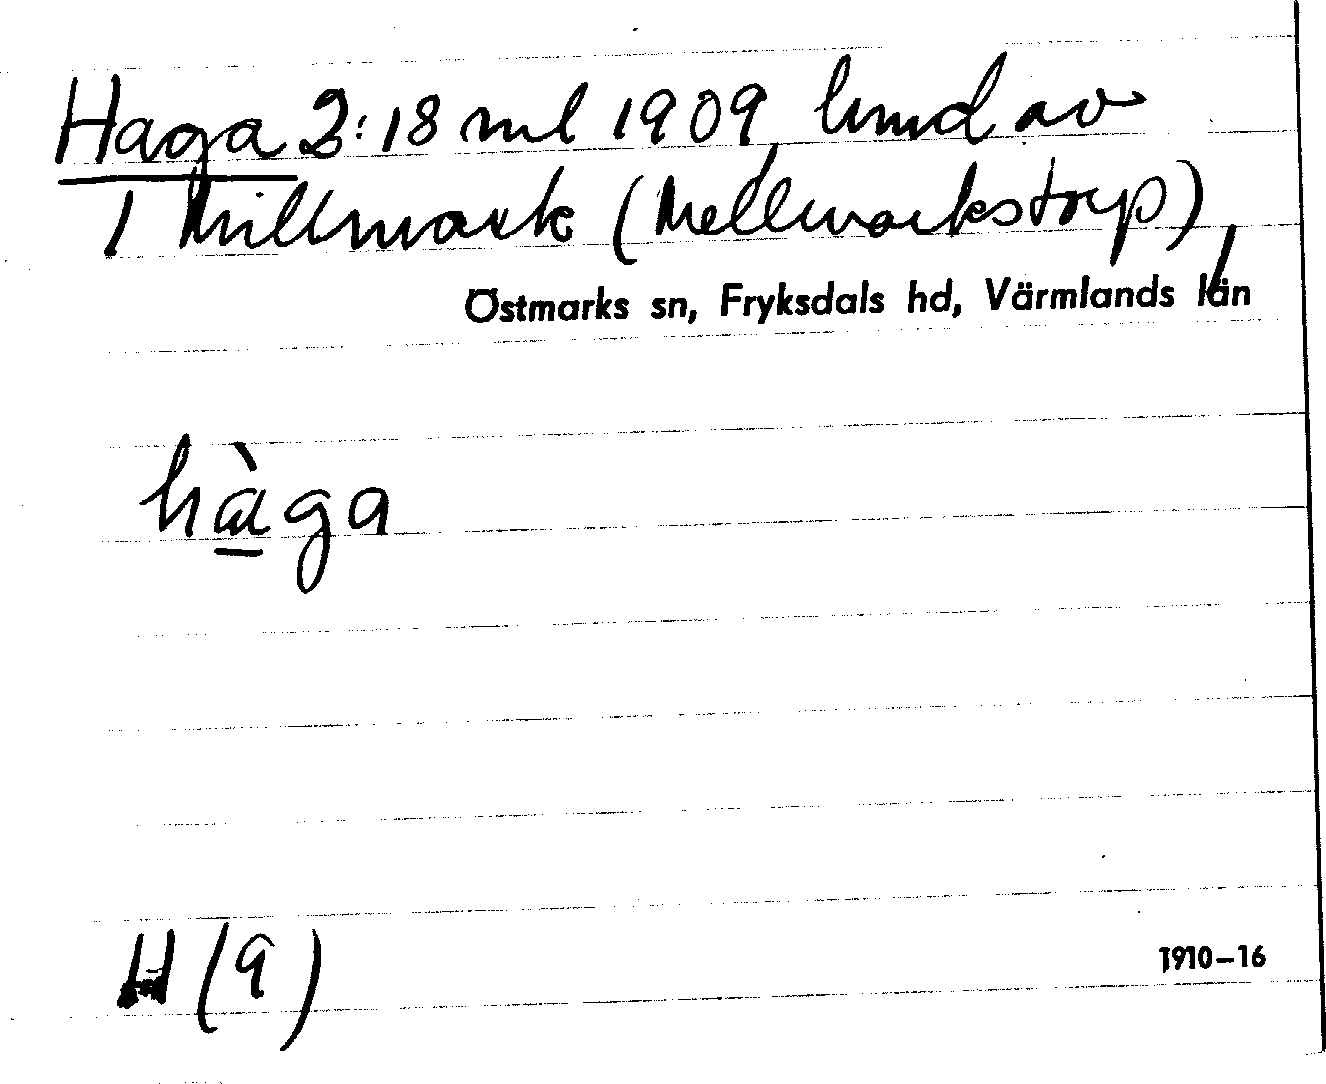 Haga 2:18 ml 1909, lund av
1 Millmark (Mellmarkstorp),
Östmarks sn, Fryksdals hd, Värmlands län
hàga
H (9)
1910–16